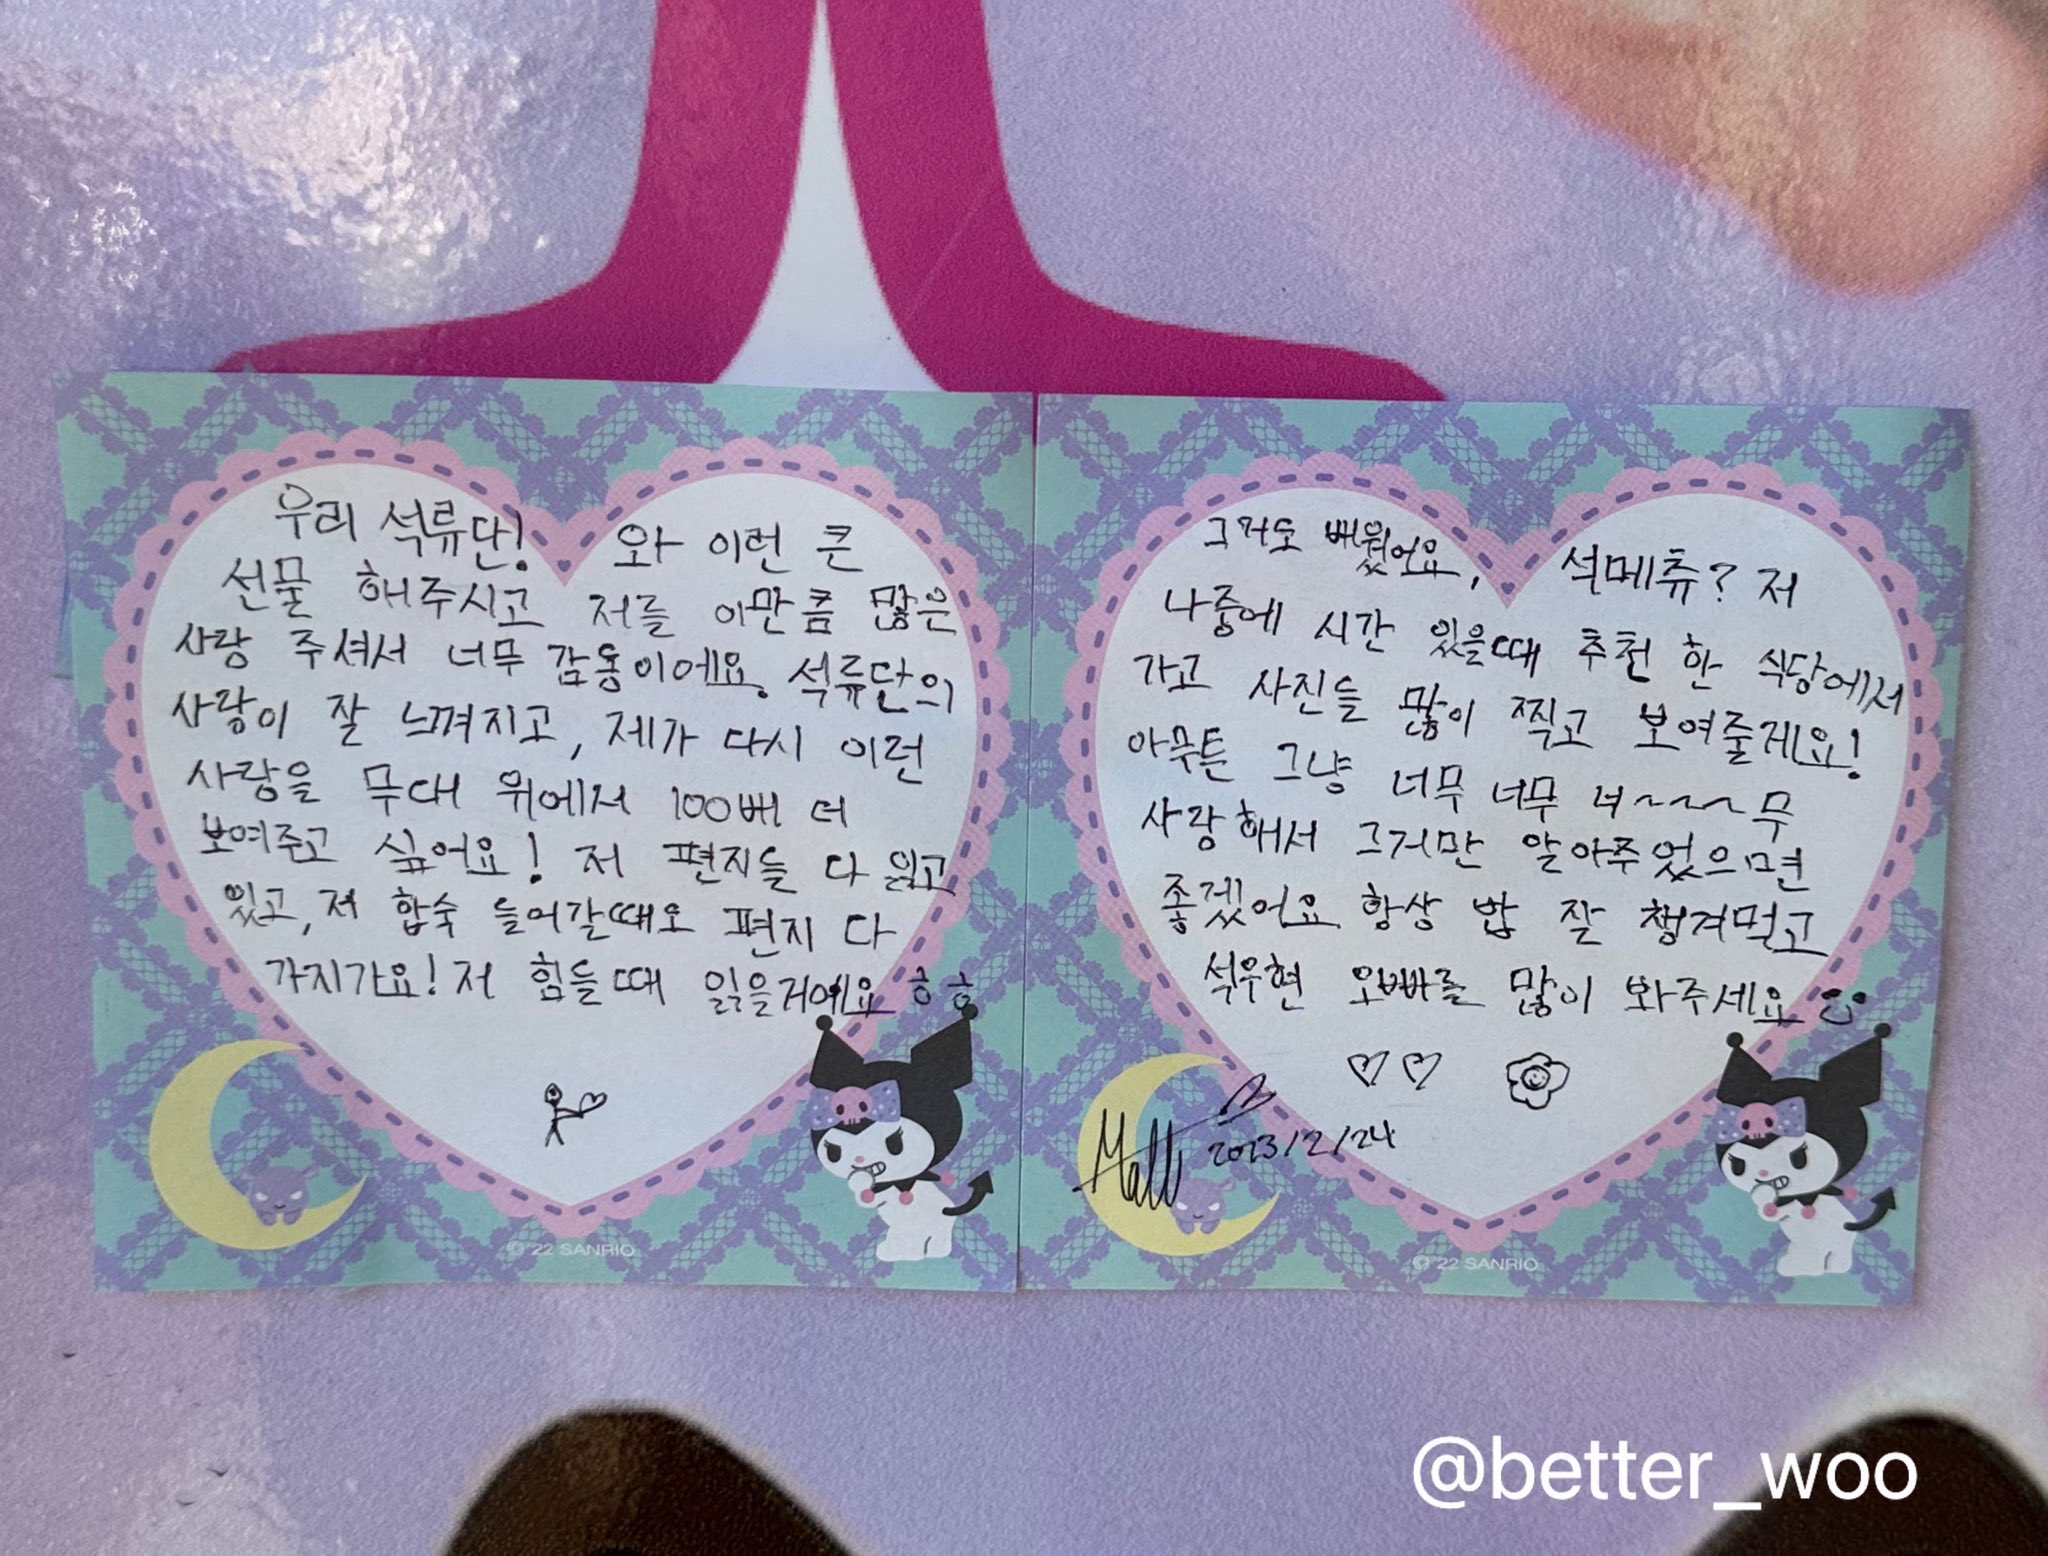 우리 석류단! 와 이런 큰
선물 해주시고 저를 이만큼 많은
사랑 주셔서 너무 감동이에요. 석류단의
사랑이 잘 느껴지고, 제가 다시 이런
사랑을 무대 위에서 100배 더
보여주고 싶어요! 저 편지들 다 읽고
있고, 저 합숙 들어갈때도 편지 다
가지가요! 저 힘들때 읽을거에요 ㅎㅎ
© '22 SANRIO
그거도 배웠어요, 석메츄? 저
나중에 시간 있을때 추천 한 식당에서
가고 사진들 많이 찍고 보여줄게요!
아무튼 그냥 너무 너무 너~~~~무
사랑해서 그거만 알아주었으면
좋겠어요 항상 밥 잘 챙겨먹고
석우현 오빠를 많이 봐주세요
Matt 2023/2/24
© '22 SANRIO
@better_woo